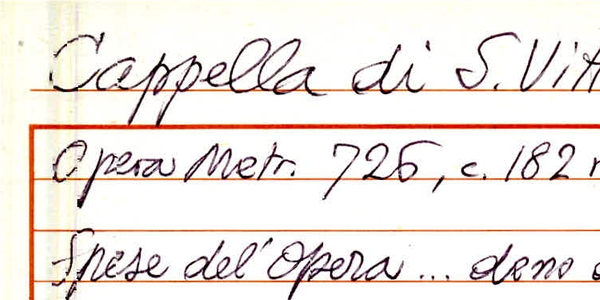 Cappella di S. Vitt
Opera Metr. 726, c. 182 r
Spese del' Opera ... deno